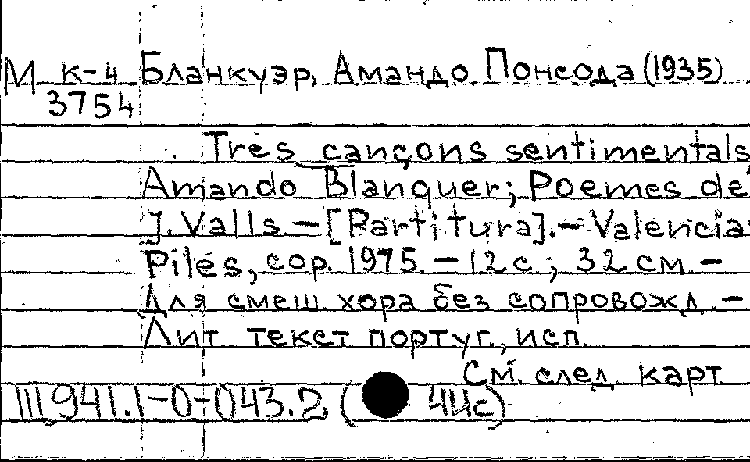 М к-4 Бланкуэр, Амандо Понсода (1935)
3754
Tres cançons sentimentals
Amando Blanquer; Poemes de
J. Valls – [Partitura]. – Valencia:
Piles, cop. 1975. – 12 с.; 32 см. –
Для смеш хора без сопровожд. –
Лит текст португ., исп.
См. след. карт.
III 941.1-0-043.2 ( 4Ис)